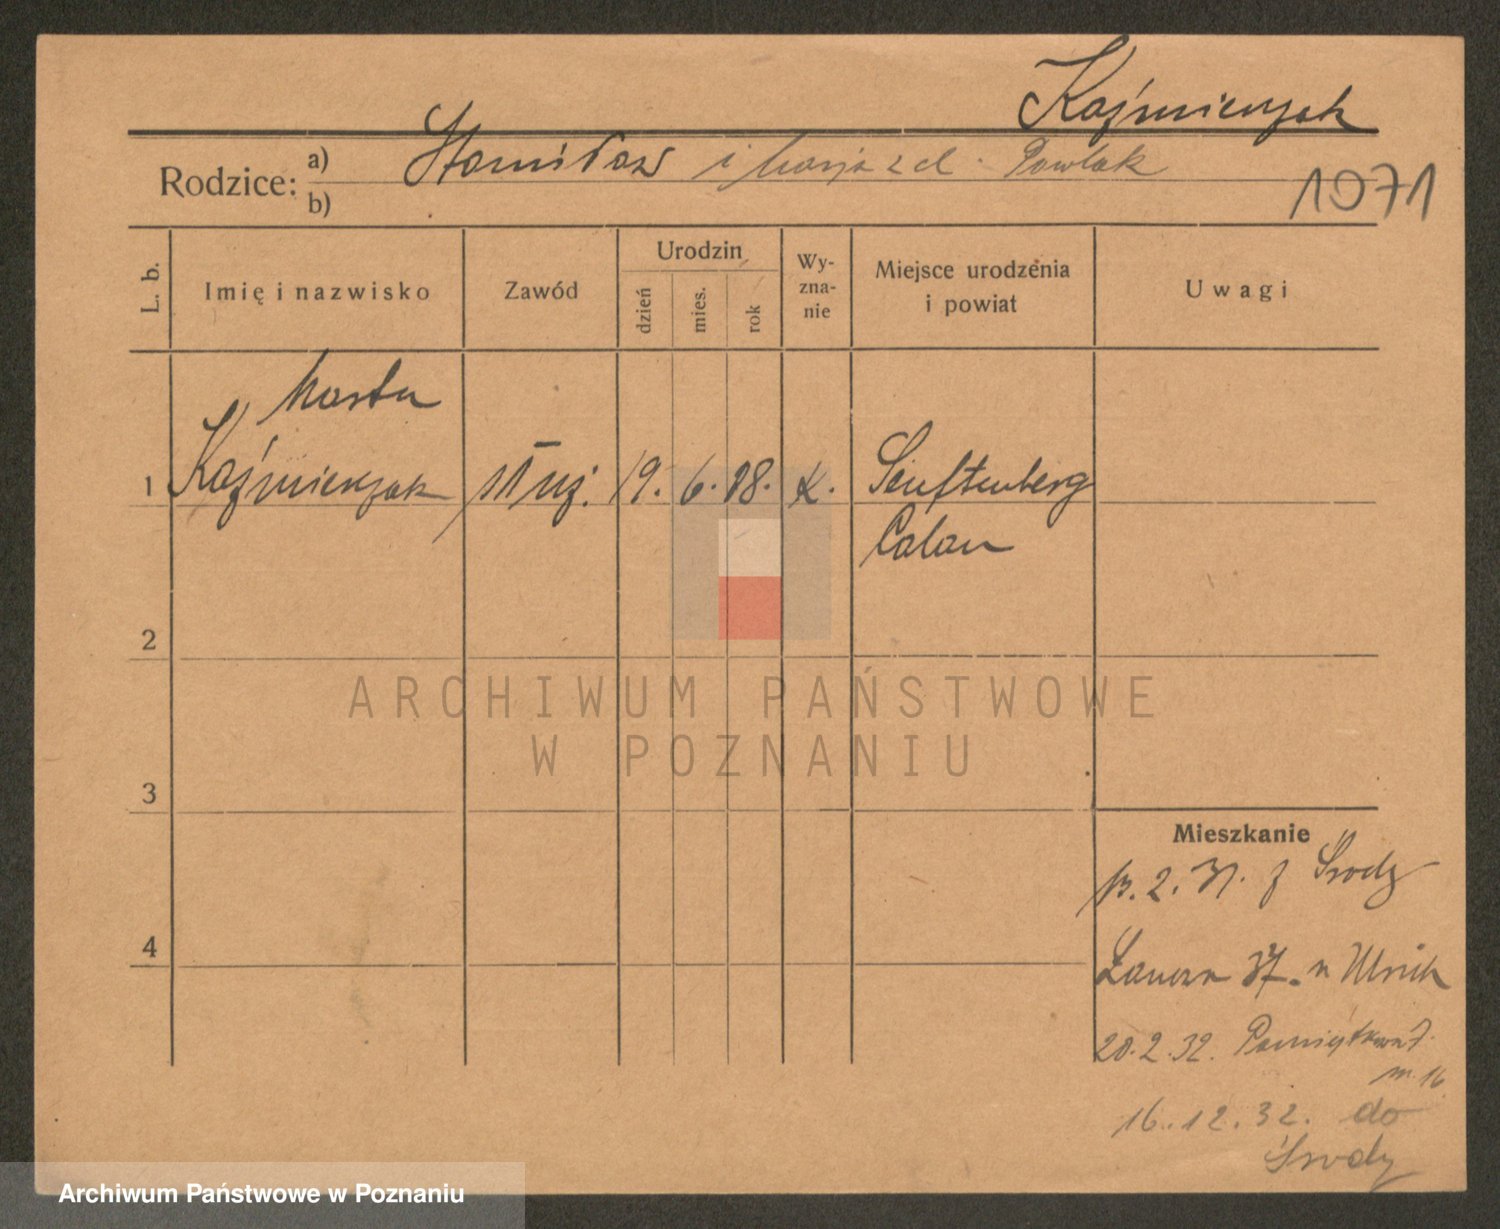 Kaźmierczak
Rodzice: a) Stanisław i Marja z d. Pawlak
b)
1071
L. b.
Imię i nazwisko
Zawód
Urodzin
dzień
mies.
rok
Wy-
zna-
nie
Miejsce urodzenia
i powiat
Uwagi
Marta
1 Kaźmierczak służ. 19. 6. 08. K. Senftenberg
Calau
2
3
4
ARCHIWUM PAŃSTWOWE
W POZNANIU
Mieszkanie
13. 2. 31. z Środy
37. u Ulrich
20. 2. 32. Pamiątkowa 7.
m. 16
16. 12. 32. do
Środy
Archiwum Państwowe w Poznaniu